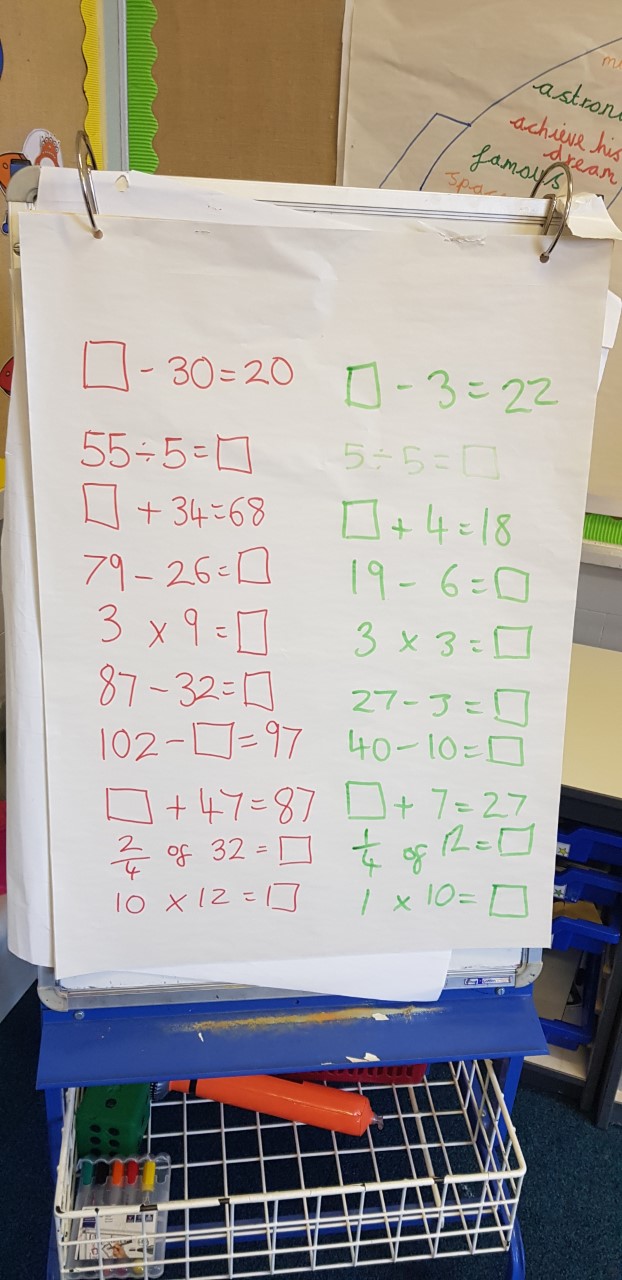 astron
achieve his
dream
famous
□ - 30 = 20
55 ÷ 5 = □
□ + 34 = 68
79 - 26 = □
3 x 9 = □
87 - 32 = □
102 - □ = 97
□ + 47 = 87
2/4 of 32 = □
10 x 12 = □
□ - 3 = 22
5 ÷ 5 = □
□ + 4 = 18
19 - 6 = □
3 x 3 = □
27 - 3 = □
40 - 10 = □
□ + 7 = 27
1/4 of 12 = □
1 x 10 = □